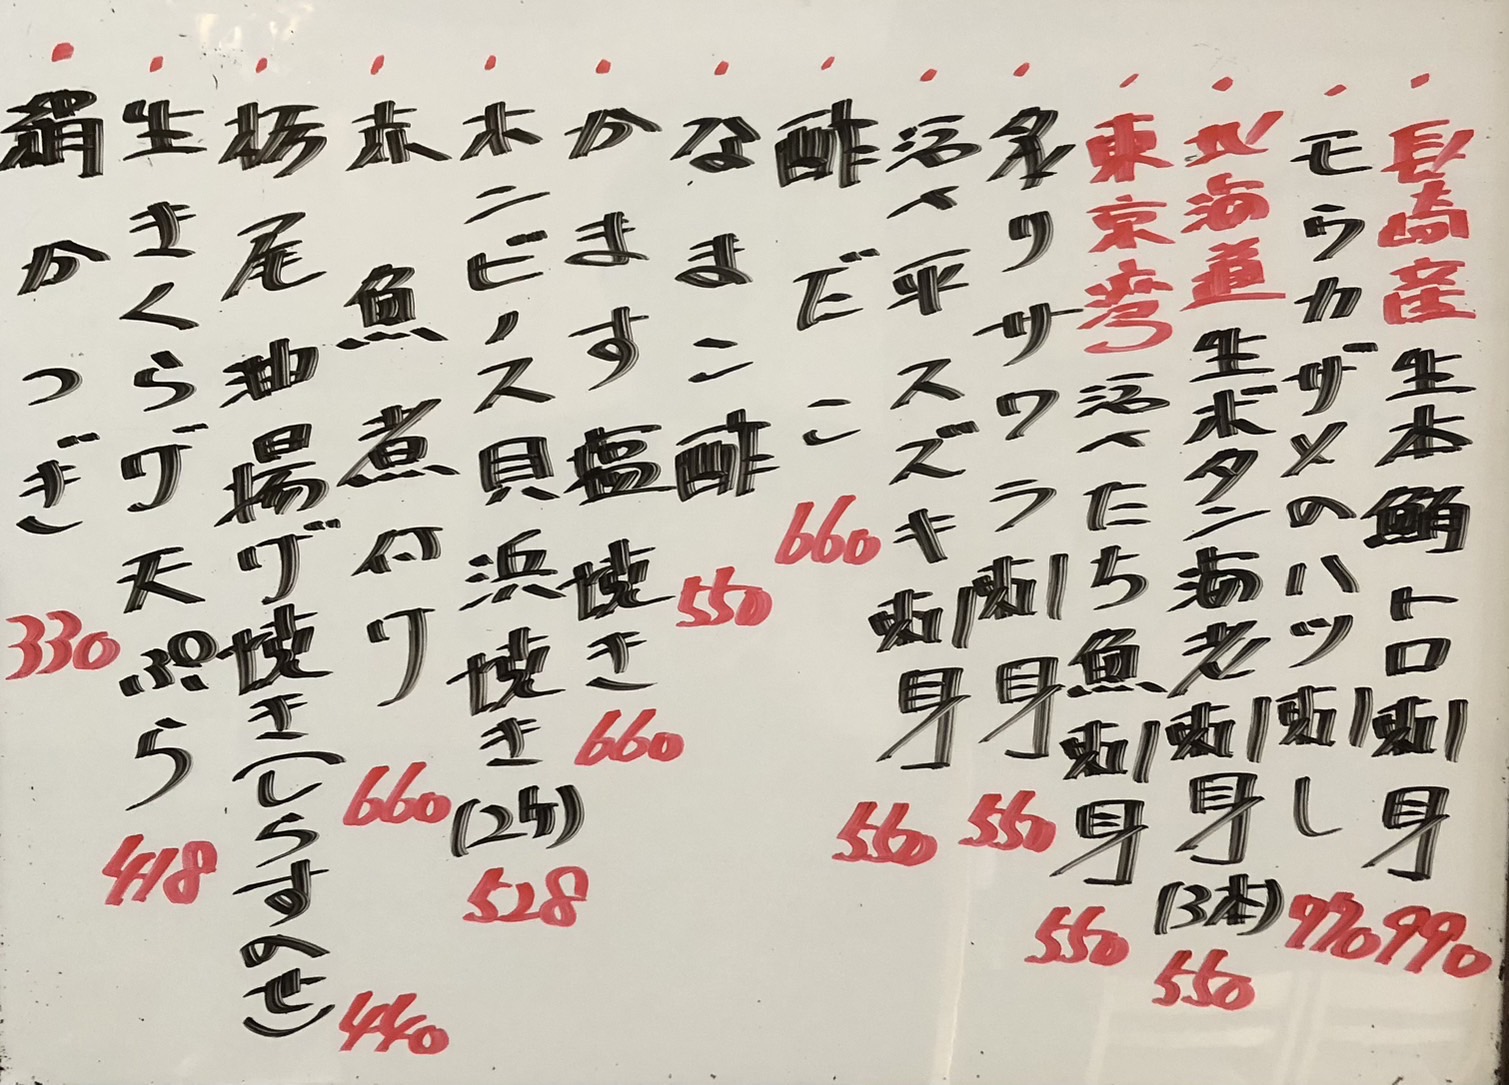 ・長崎産生本鮪トロ刺身 990
・モウカザメのハツ刺し 770
・北海道生ボタン海老刺身(3本) 550
・東京湾活〆たち魚刺身 550
・炙りサワラ刺身 550
・活〆平スズキ刺身 550
・酢だこ 660
・なまこ酢 550
・かます塩焼き 660
・ホンビノス貝浜焼き(2ケ) 528
・赤魚煮付け 660
・栃尾油揚げ焼き(しらすのせ) 440
・生きくらげ天ぷら 418
・絹かつぎ 330